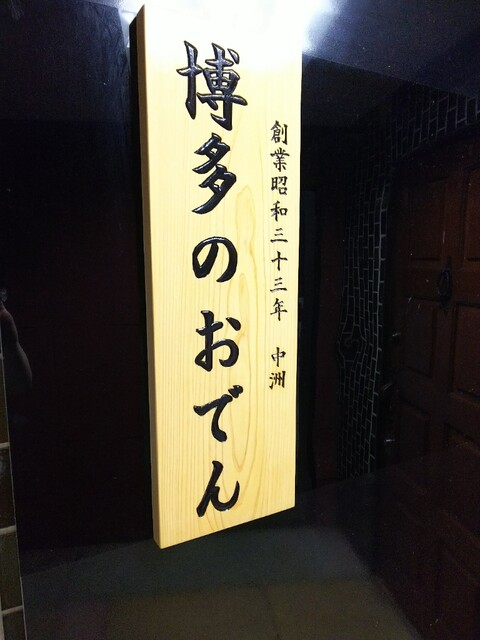 創業昭和三十三年 中洲
博多のおでん